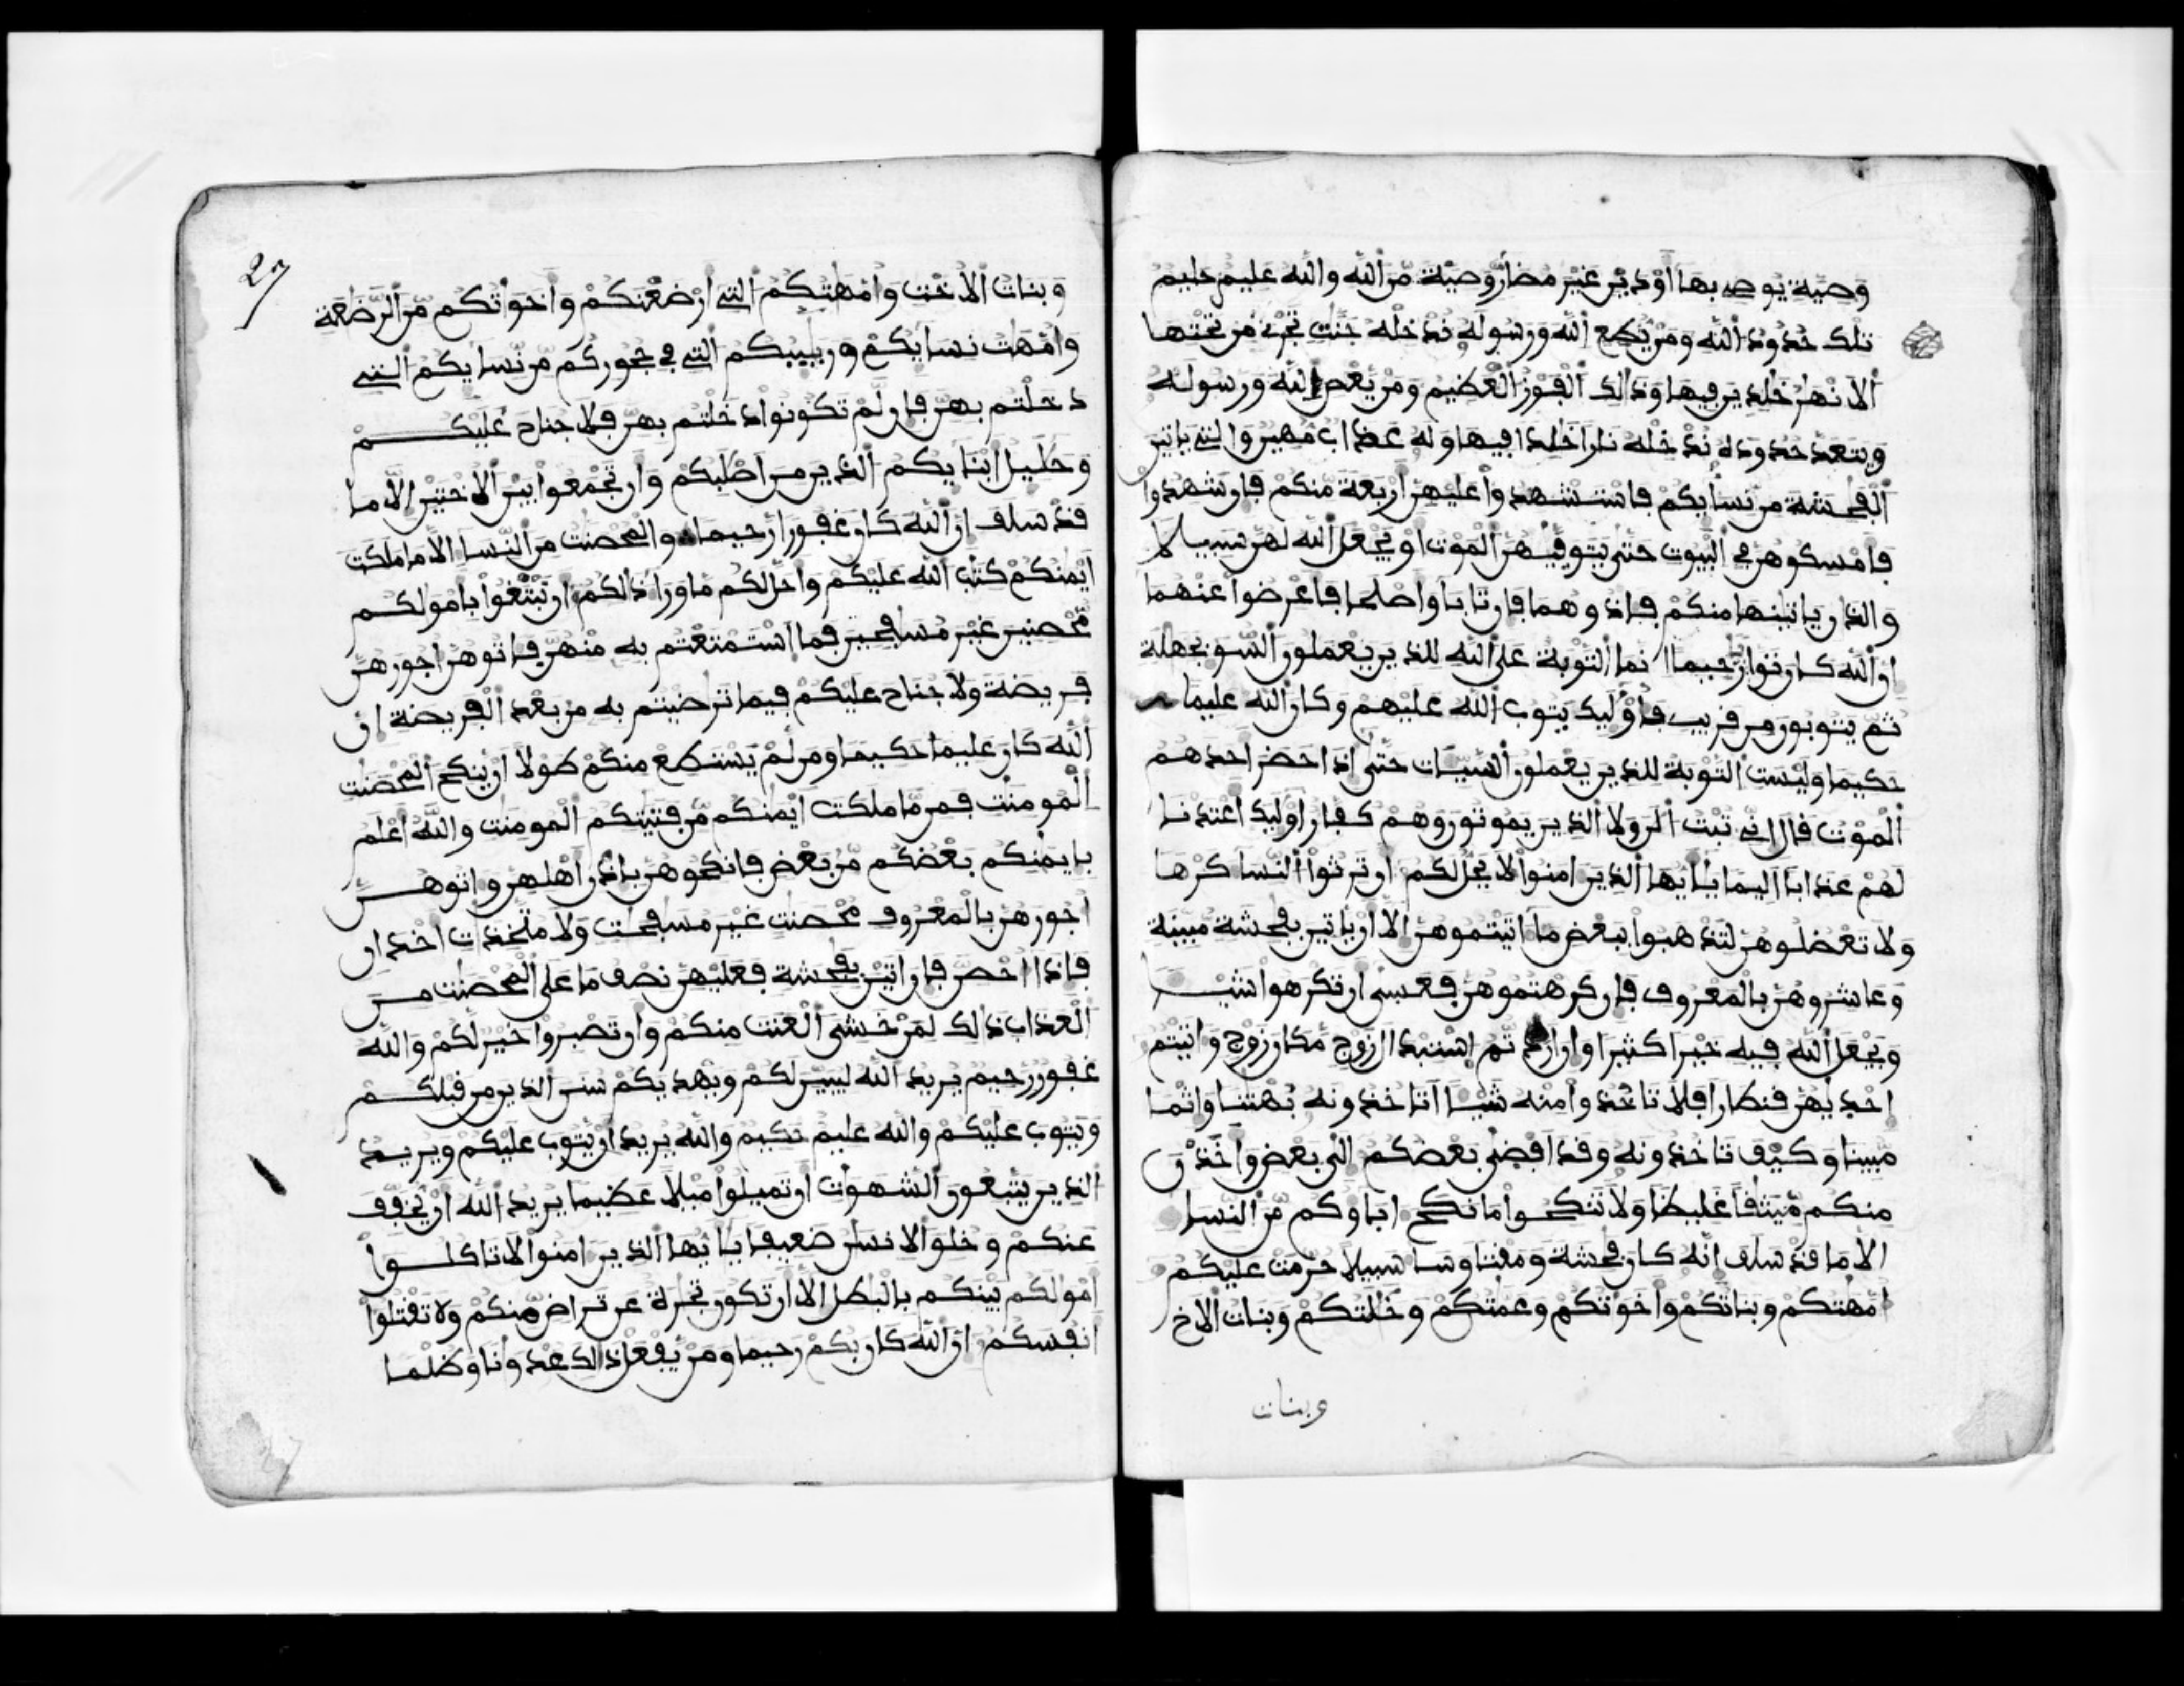 وصية يوصى بها أو دين غير مضار وصية من الله والله عليم حليم
تلك حدود الله ومن يطع الله ورسوله ندخله جنت تجرى من تحتها
الانهر خلدين فيها وذالك الفوز العظيم ومن يعص الله ورسوله
ويتعد حدوده ندخله نارا خلدا فيها وله عذاب مهين والتى ياتين
الفحشة من نسايكم فاستشهدوا عليهن اربعة منكم فان شهدوا
فامسكوهن فى البيوت حتى يتوفيهن الموت او يجعل الله لهن سبيلا
والذان ياتينها منكم فاذوهما فان تابا واصلحا فاعرضوا عنهما
ان الله كان توابا رحيما انما التوبة على الله للذين يعملون السو بجهلة
ثم يتوبون من قريب فاوليك يتوب الله عليهم وكان الله عليما
حكيما وليست التوبة للذين يعملون السيات حتى اذا حضر احدهم
الموت قال انى تبت الن ولا الذين يموتون وهم كفار اوليك اعتدنا
لهم عذابا اليما يايها الذين امنوا لا يحل لكم ان ترثوا النسا كرها
ولا تعضلوهن لتذهبوا ببعض ما اتيتموهن الا ان ياتين بفحشة مبينة
وعاشروهن بالمعروف فان كرهتموهن فعسى ان تكرهوا شيا
ويجعل الله فيه خيرا كثيرا وان اردتم استبدال زوج مكان زوج واتيتم
احديهن قنطارا فلا تاخذوا منه شيا اتاخذونه بهتنا واثما
مبينا وكيف تاخذونه وقد افضى بعضكم الى بعض واخذن
منكم ميثقا غليظا ولا تنكحوا ما نكح اباوكم من النسا
الا ما قد سلف انه كان فحشة ومقتا وسا سبيلا حرمت عليكم
امهتكم وبناتكم واخوتكم وعمتكم وخلتكم وبنات الاخ
وبنات
27
وبنات الاخت وامهتكم التى ارضعنكم واخواتكم من الرضعة
وامهت نسايكم وربيبكم التى فى حجوركم من نسايكم التى
دخلتم بهن فان لم تكونوا دخلتم بهن فلا جناح عليكم
وحليل ابنايكم الذين من اصلبكم وان تجمعوا بين الاختين الا ما
قد سلف ان الله كان غفورا رحيما والمحصنت من النسا الا ما ملكت
ايمنكم كتب الله عليكم واحل لكم ما ورا ذالكم ان تبتغوا بامولكم
محصنين غير مسفحين فما استمتعتم به منهن فاتوهن اجورهن
فريضة ولا جناح عليكم فيما ترضيتم به من بعد الفريضة ان
الله كان عليما حكيما ومن لم يستطع منكم طولا ان ينكح المحصنت
المومنت فمن ما ملكت ايمنكم من فتيتكم المومنت والله اعلم
بايمنكم بعضكم من بعض فانكحوهن باذن اهلهن واتوهن
اجورهن بالمعروف محصنت غير مسفحت ولا متخذات اخدان
فاذا احصن فان اتين بفحشة فعليهن نصف ما على المحصنت من
العذاب ذالك لمن خشى العنت منكم وان تصبروا خير لكم والله
غفور رحيم يريد الله ليبين لكم ويهديكم سنن الذين من قبلكم
ويتوب عليكم والله عليم حكيم والله يريد ان يتوب عليكم ويريد
الذين يتبعون الشهوت ان تميلوا ميلا عظيما يريد الله ان يخفف
عنكم وخلق الانسن ضعيفا يايها الذين امنوا لا تاكلوا
امولكم بينكم بالبطل الا ان تكون تجرة عن تراض منكم ولا تقتلوا
انفسكم ان الله كان بكم رحيما ومن يفعل ذالك عدونا وظلما